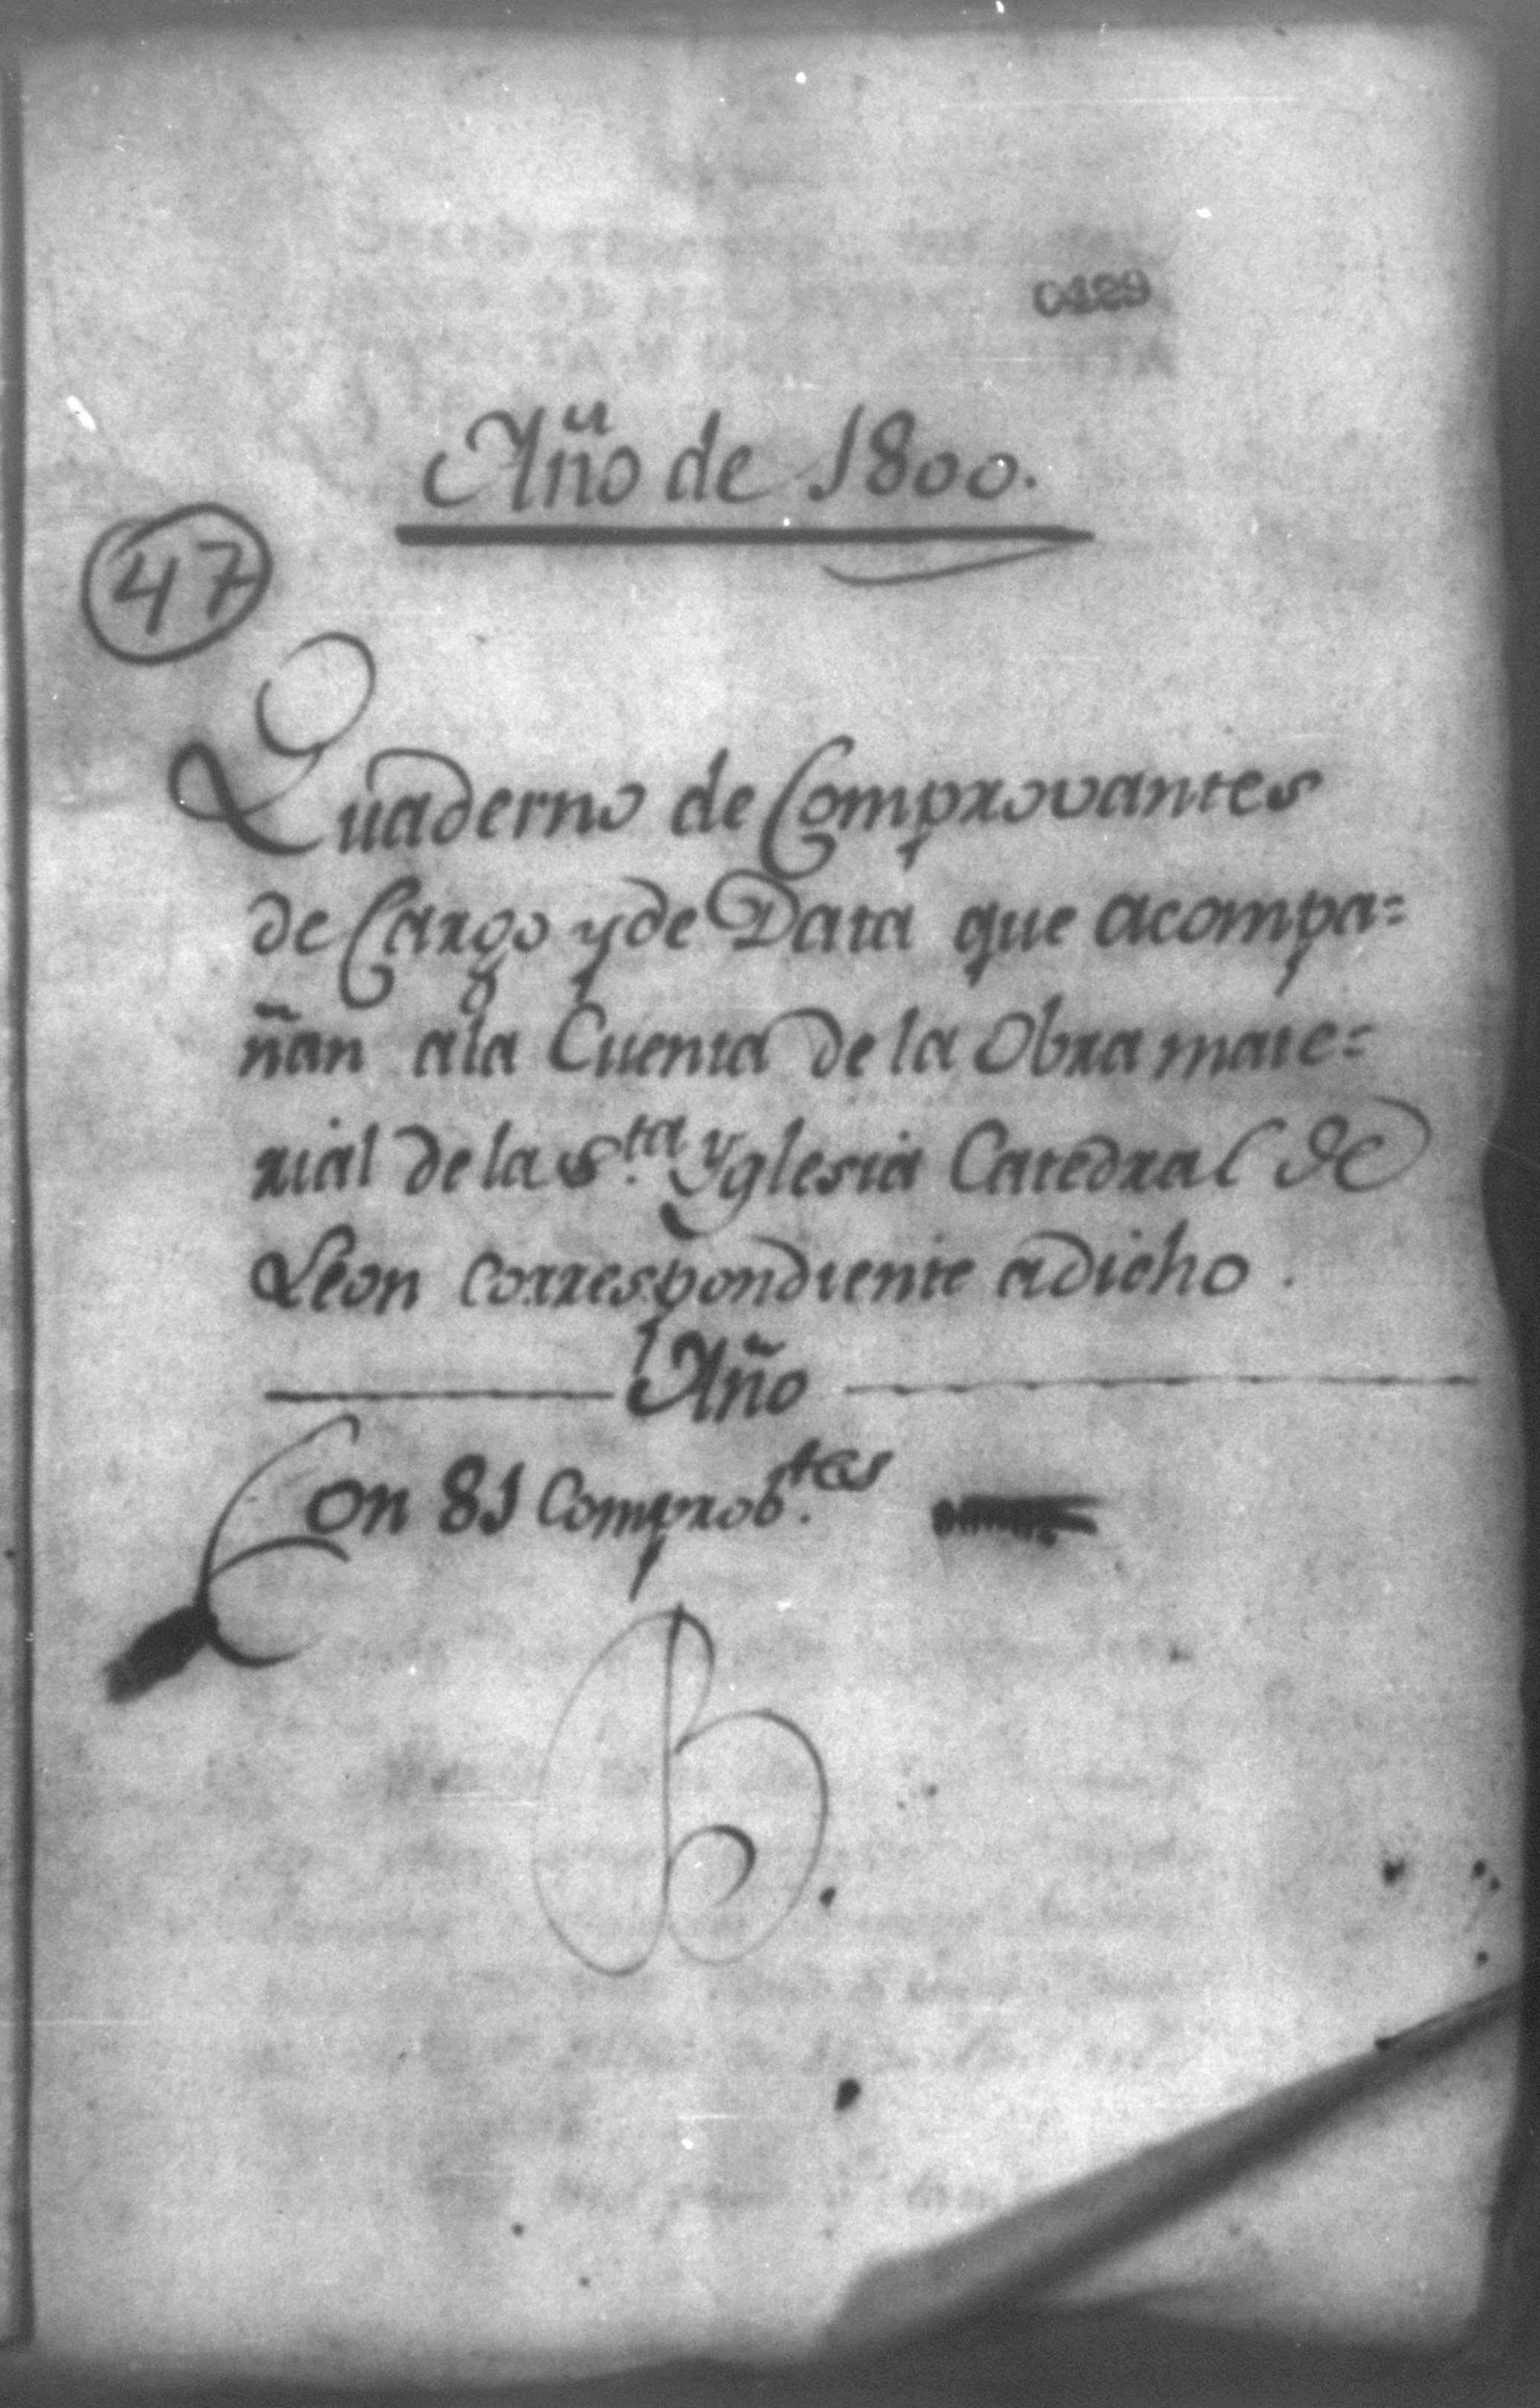 0429
Año de 1800.
47
Quaderno de Comprovantes
de Cargo y de Data que acompa=
ñan a la Cuenta de la Obra mate=
rial de la S.ta Yglesia Catedral de
Leon correspondiente a dicho.
Año
Con 81 Comprob.tes